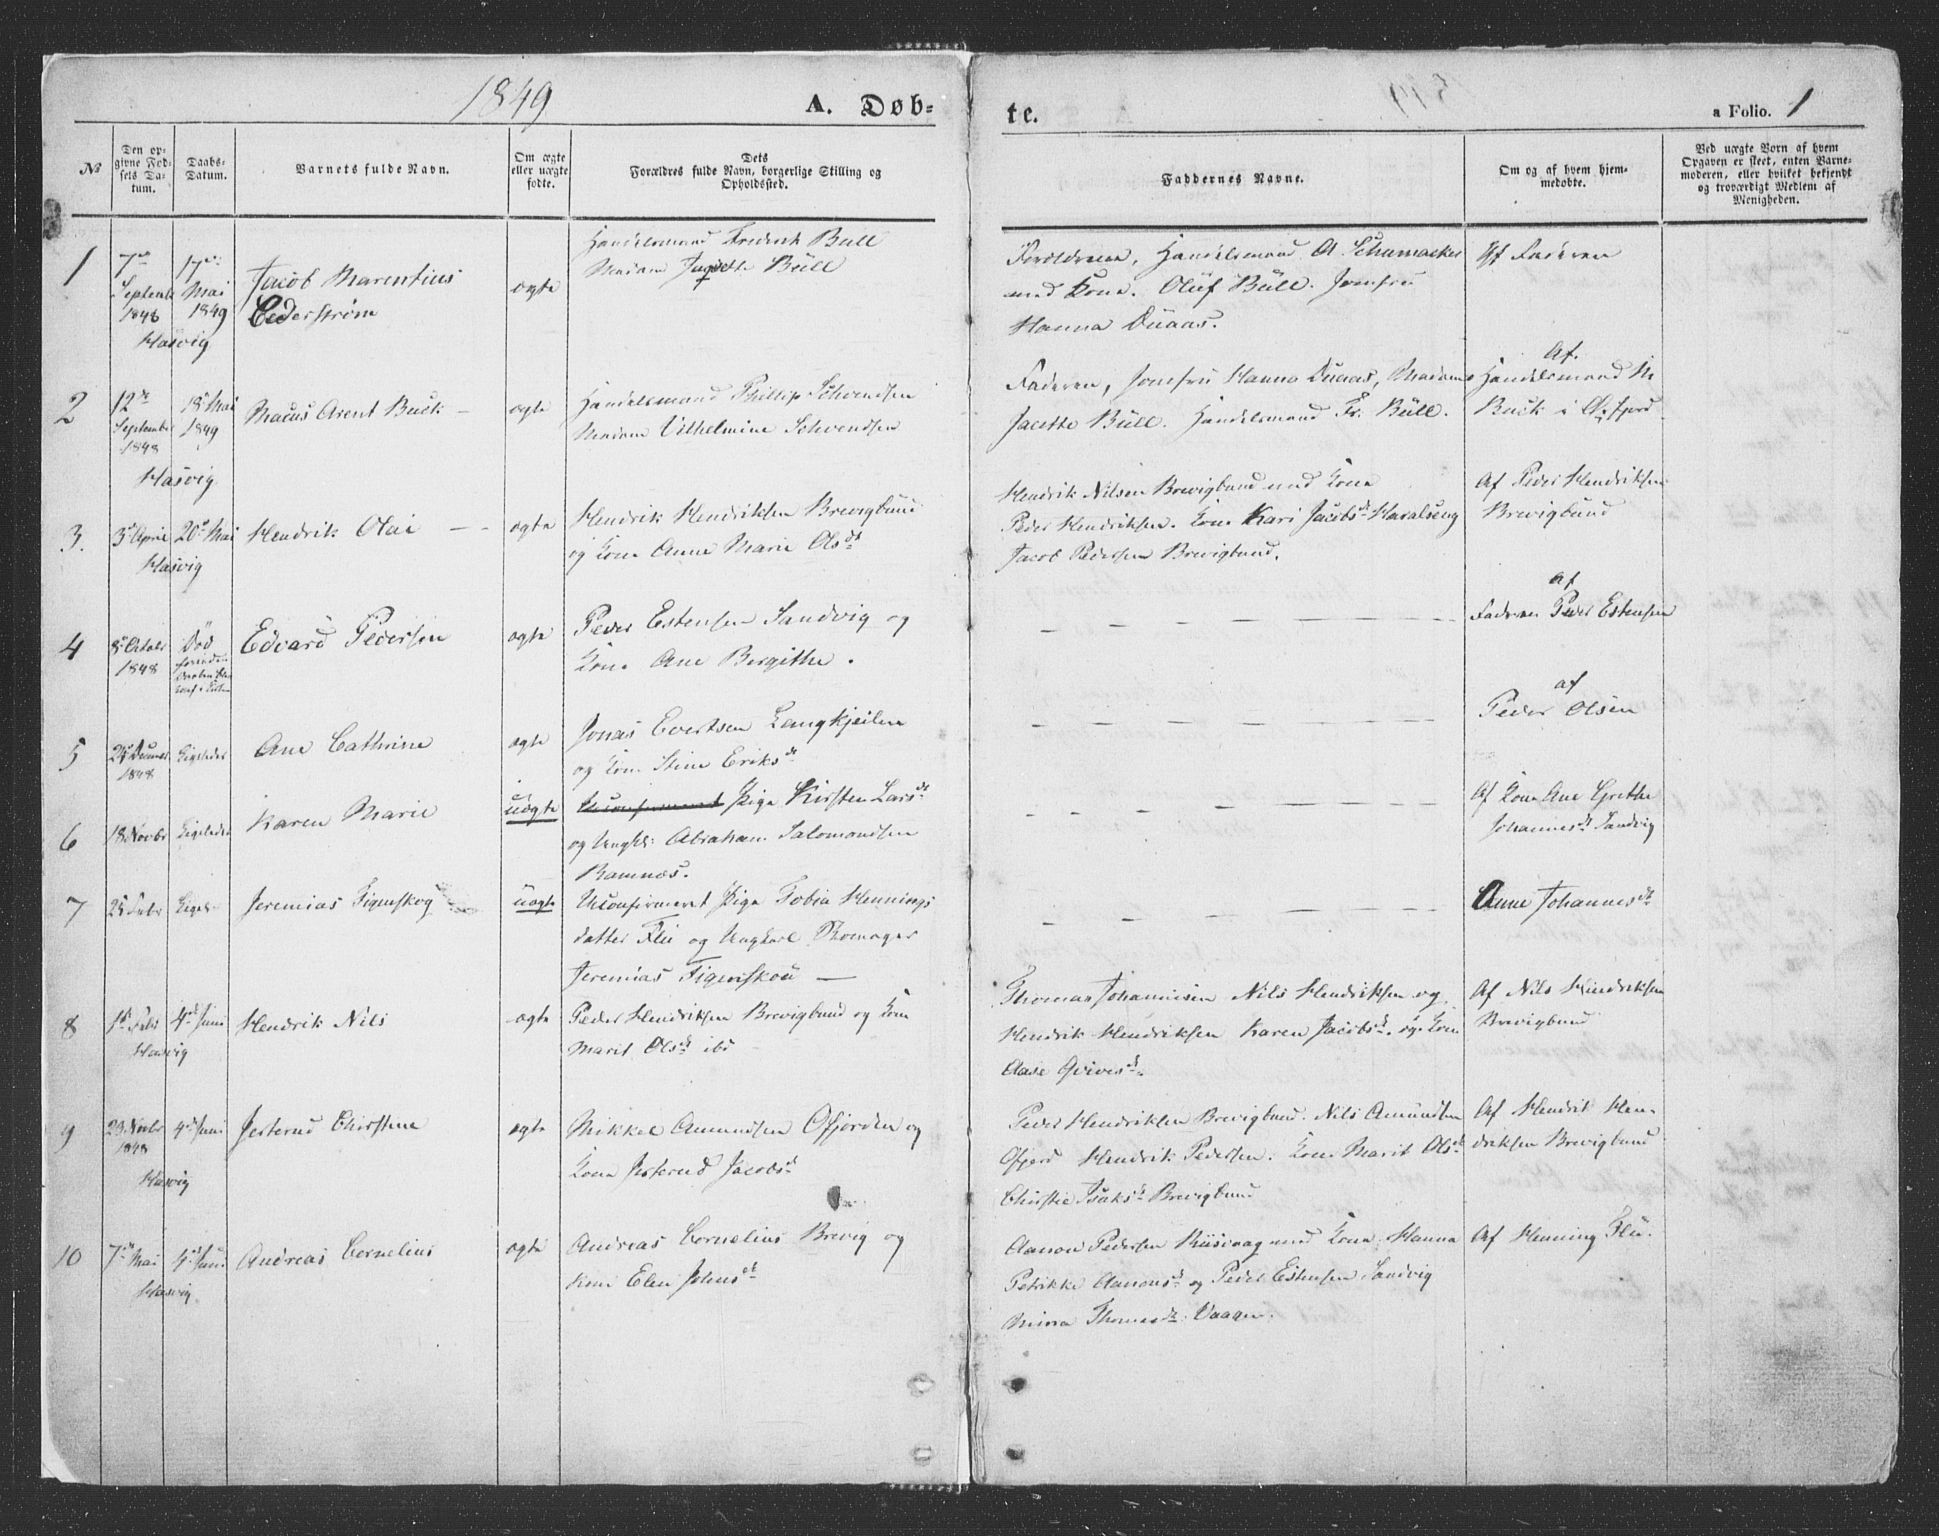 1849
A. Døb=
te.
a Folio. 1
No
Den op-
givne Fød-
sels Da-
tum.
Daabs-
Datum.
Barnets fulde Navn.
Om ægte
eller uægte
fødte.
Dets
Forældres fulde Navn, borgerlige Stilling og
Opholdssted.
Faddernes Navne.
Om og af hvem hjem-
medøbte.
Ved uægte Børn af hvem
Opgaven er skeet, enten Barne-
moderen, eller hvilket bekjendt
og troværdigt Medlem af
Menigheden.
1
7de
Septemb
1848
17de
Mai
1849
Hasvig
Jacob Marentius
Cederstrøm
ægte
Handelsmand Frederik Büll
Madam Büll
Forældrene, Handelsmand A. Schumacker
med Kone. Oluf Büll. Jomfru
Hanna Duaas.
Af Faderen
2
12te
September
1848
18de Mai
1849
Hasvig
Macus Arent Buck —
ægte
Handelsmand Phillip Schvendsen
Madam Vilhelmine Schvendsen
Faderen, Jomfru Hanna Duaas, Madame
Jacette Büll. Handelsmand Fr. Büll.
Af.
Handelsmand M
Buck i Øxfjord
3.
3de April
20de Mai
Hasvig
Hendrik Olai — -
ægte
Hendrik Hendriksen Brevigbund
og Kone Anne Marie Olsdt
Hendrik Nilsen Brevigbund med Kone
Peder Hendriksen. Kone Kari Jacobsdt Haralseng
Jacob Pedersen Brevigbund.
Af Peder Hendriksen
Brevigbund
4
8de Octobr
1848
Død
Edvard Pedersen
ægte
Peder Estensen Sandvig og
Kone Ane Bergithe.
— — — — — — — —
af
Faderen Peder Estensen
5
1848
Ligeledes
Ane Cathrine
ægte
Jonas Evertsen Langkjeilen
og Kone Stine Eriksdt
— — — — — — — —
af
Peder Olsen
6
18 Novbr
Ligeledes
Karen Marie
uægte
Uconfirmeret Pige Kirsten Larsdt
og Ungkl: Abraham Salomonsen
Ramnæs.
— — — — — — — —
Af Kone Ane Grethe
Johannesdt Sandvig
7
25 Febr
Ligel-
Jeremias Figenskog
uægte
Uconfirmeret Pige Tobia Hennings
datter Flu og Ungkarl
Jeremias Figenskou —
— — — — — — — —
Anne Johannesdt
8
1ste Febr
4de Juni
Hasvig
Hendrik Nils
ægte
Peder Hendriksen Brevigbund og Kone
Marit Olsdt ibd
Thomas Johannesen Nils Hendriksen og
Hendrik Hendriksen Karen Jacobsdt. og Kone
Aase
Af Nils Hendriksen
Brevigbund
9
29 Novbr
1848
4de Juni
Hasvig
Jesterud Chirstine
ægte
Mikkel Amundsen Ofjorden og
Kone Jesterud Jacobsdt
Peder Hendriksen Brevigbund. Nils Amundsen
Ofjord Hendrik Pedersen. Kone Marit Olsdt
Christie Isaksdt Brevigbund
Af Hendrik Hen-
driksen Brevigbund
10
7de Mai
4de Juni
Hasvig
Andreas Cornelius
ægte
Andreas Cornelius Brevig og
Kone Elen Johnsdt
Aanon Pedersen Riisevaag med Kone. Hanna
Petrikke Aanonsdt og Peder Estensen Sandvig
Mina Thomasdt. Vaagen.
Af Henning Flu.